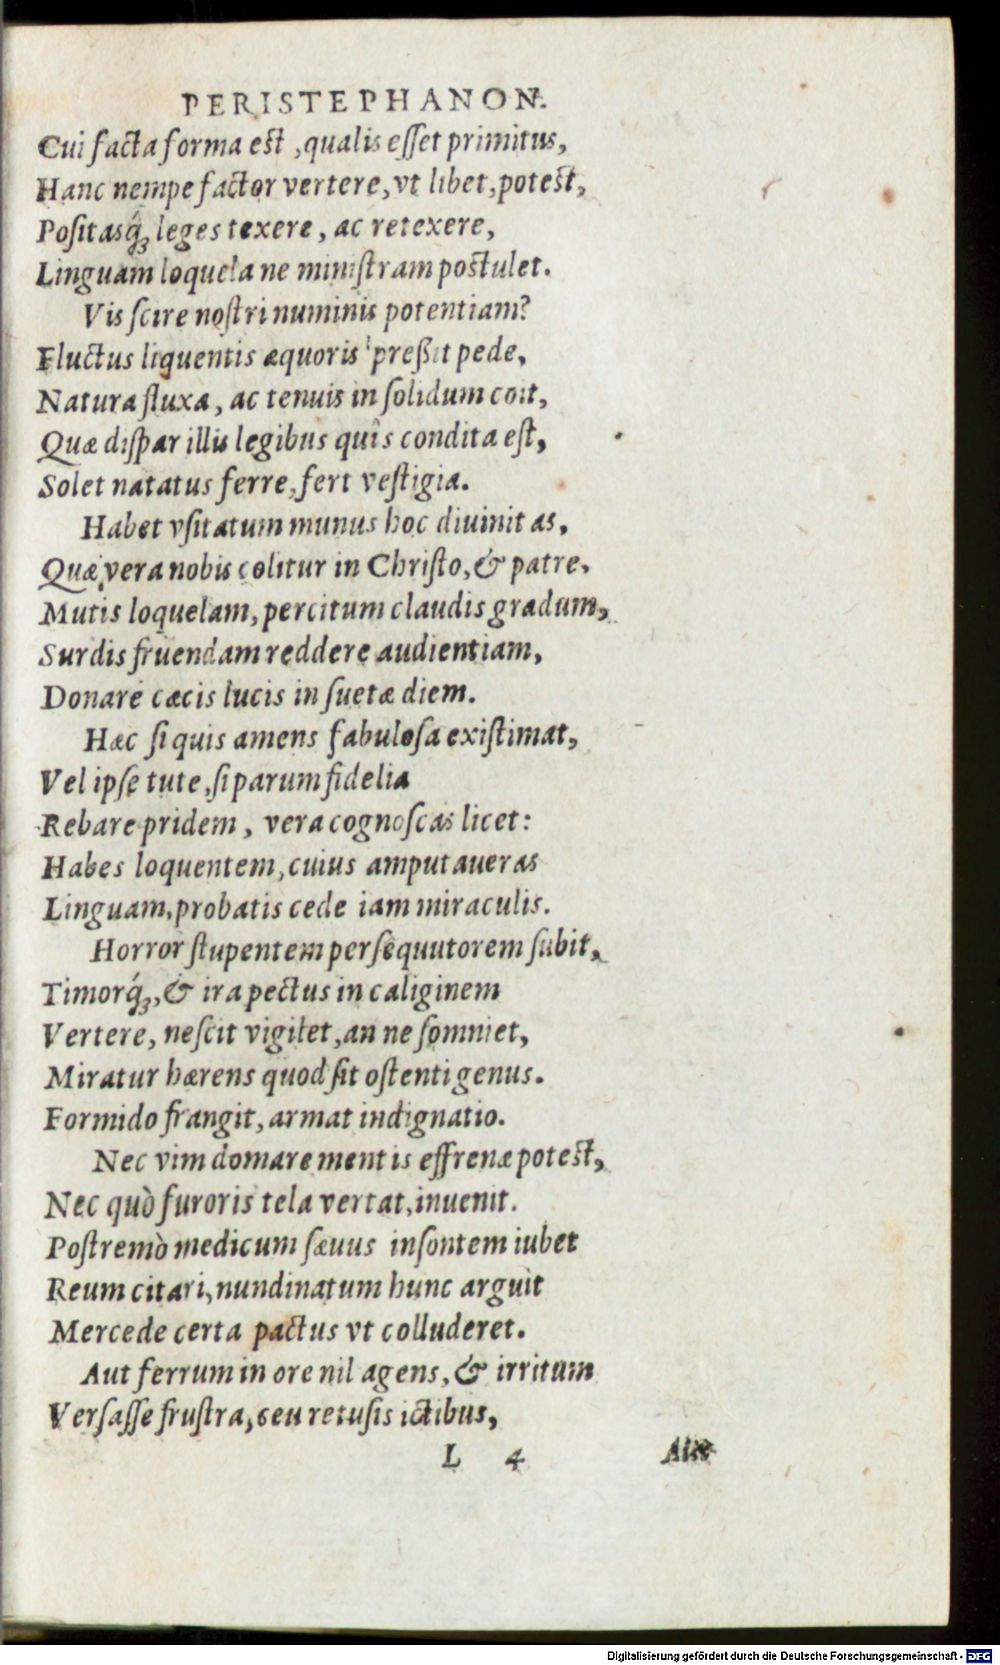 PERISTEPHANON.
Cui facta forma est, qualis esset primitus,
Hanc nempe factor vertere, vt libet, potest,
Positasq́; leges texere, ac retexere,
Linguam loquela ne ministram postulet.
Vis scire nostri numinis potentiam?
Fluctus liquentis æquoris pressit pede,
Natura fluxa, ac tenuis in solidum coit,
Quæ dispar illis legibus quîs condita est,
Solet natatus ferre, fert vestigia.
Habet vsitatum munus hoc diuinitas,
Quæ vera nobis colitur in Christo, & patre,
Mutis loquelam, percitum claudis gradum,
Surdis fruendam reddere audientiam,
Donare cæcis lucis insuetæ diem.
Hæc si quis amens fabulosa existimat,
Vel ipse tute, si parum fidelia
Rebare pridem, vera cognoscas licet:
Habes loquentem, cuius amputaueras
Linguam, probatis cede iam miraculis.
Horror stupentem persequutorem subit,
Timorq́;, & ira pectus in caliginem
Vertere, nescit vigilet, an ne somniet,
Miratur hærens quod sit ostenti genus.
Formido frangit, armat indignatio.
Nec vim domare mentis effrenæ potest,
Nec quò furoris tela vertat, inuenit.
Postremò medicum sæuus insontem iubet
Reum citari, nundinatum hunc arguit
Mercede certa pactus vt colluderet.
Aut ferrum in ore nil agens, & irritum
Versasse frustra, seu retusis ictibus,
L 4 Aut
Digitalisierung gefördert durch die Deutsche Forschungsgemeinschaft - DFG